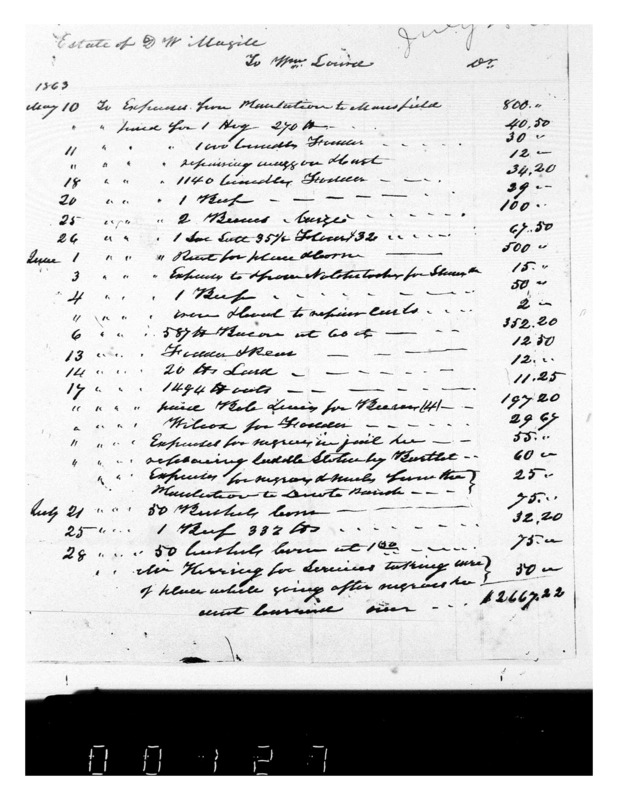 July
Estate of D W Magill
To Wm Dr
1863
May 10 To Expenses from Plantation to Mansfield 800 "
" " paid for 1 Hog 270 lb - - - 40.50
11 " " " 1000 bundles Fodder - - - 30 "
" " " " repairing waggon & 12 -
18 " " " 1140 bundles Fodder - - - 34.20
20 " " " 1 Beef - - - - 39 -
25 " " " 2 Beeves - - - 100 "
26 " " " 1 Sac Salt 35 1/2 Flour 32 - - - 67.50
June 1 " " " Rent for place & - - 500 "
3 " " Expenses to & from Natchitoches for 15 "
4 " " " 1 Beef - - - - 50 "
" " " to repair carts - - - 2 -
6 " " " 587 lb Bacon at 60 cts - - 352.20
13 " " " Fodder & Peas - - - 12.50
14 " " " 20 lbs Lard - - - 12 "
17 " " " 1494 lb oats - - - 11.25
" " " " paid Bob for Beeves (4) - - 197.20
" " " " Wilcox for Fodder - - - 29.67
" " " Expenses for negroes in jail &c - - - 55 "
" " " repairing Saddle by - - 60 "
" " Expenses for negroes & mules from the } 25 "
Plantation to - - - } 75 "
July 21 " " " 50 Bushels corn - - - 32.20
25 " " " 1 Beef 332 lbs - - - - 75 "
28 " " " 50 bushels corn at 1 50 - - -
" " Mr Herring for Services taking care } 50 "
of place while going after negroes &c
amt carried over - - - $2667.22
00127